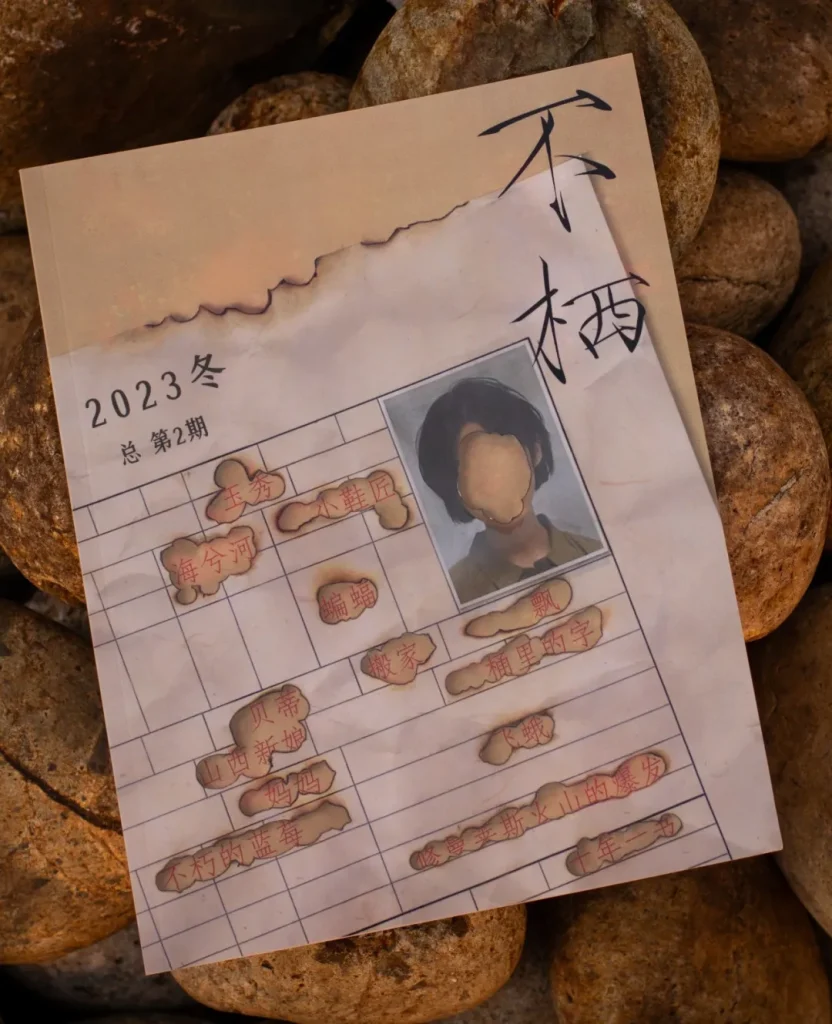 不栖
2023冬
总 第2期
玉秀
小鞋匠
海兮河
蝙蝠
飘
搬家
里的字
贝蒂
山西新娘
飞蛾
妈妈
不朽的蓝莓
修曼莱斯火山的爆发
十年一书